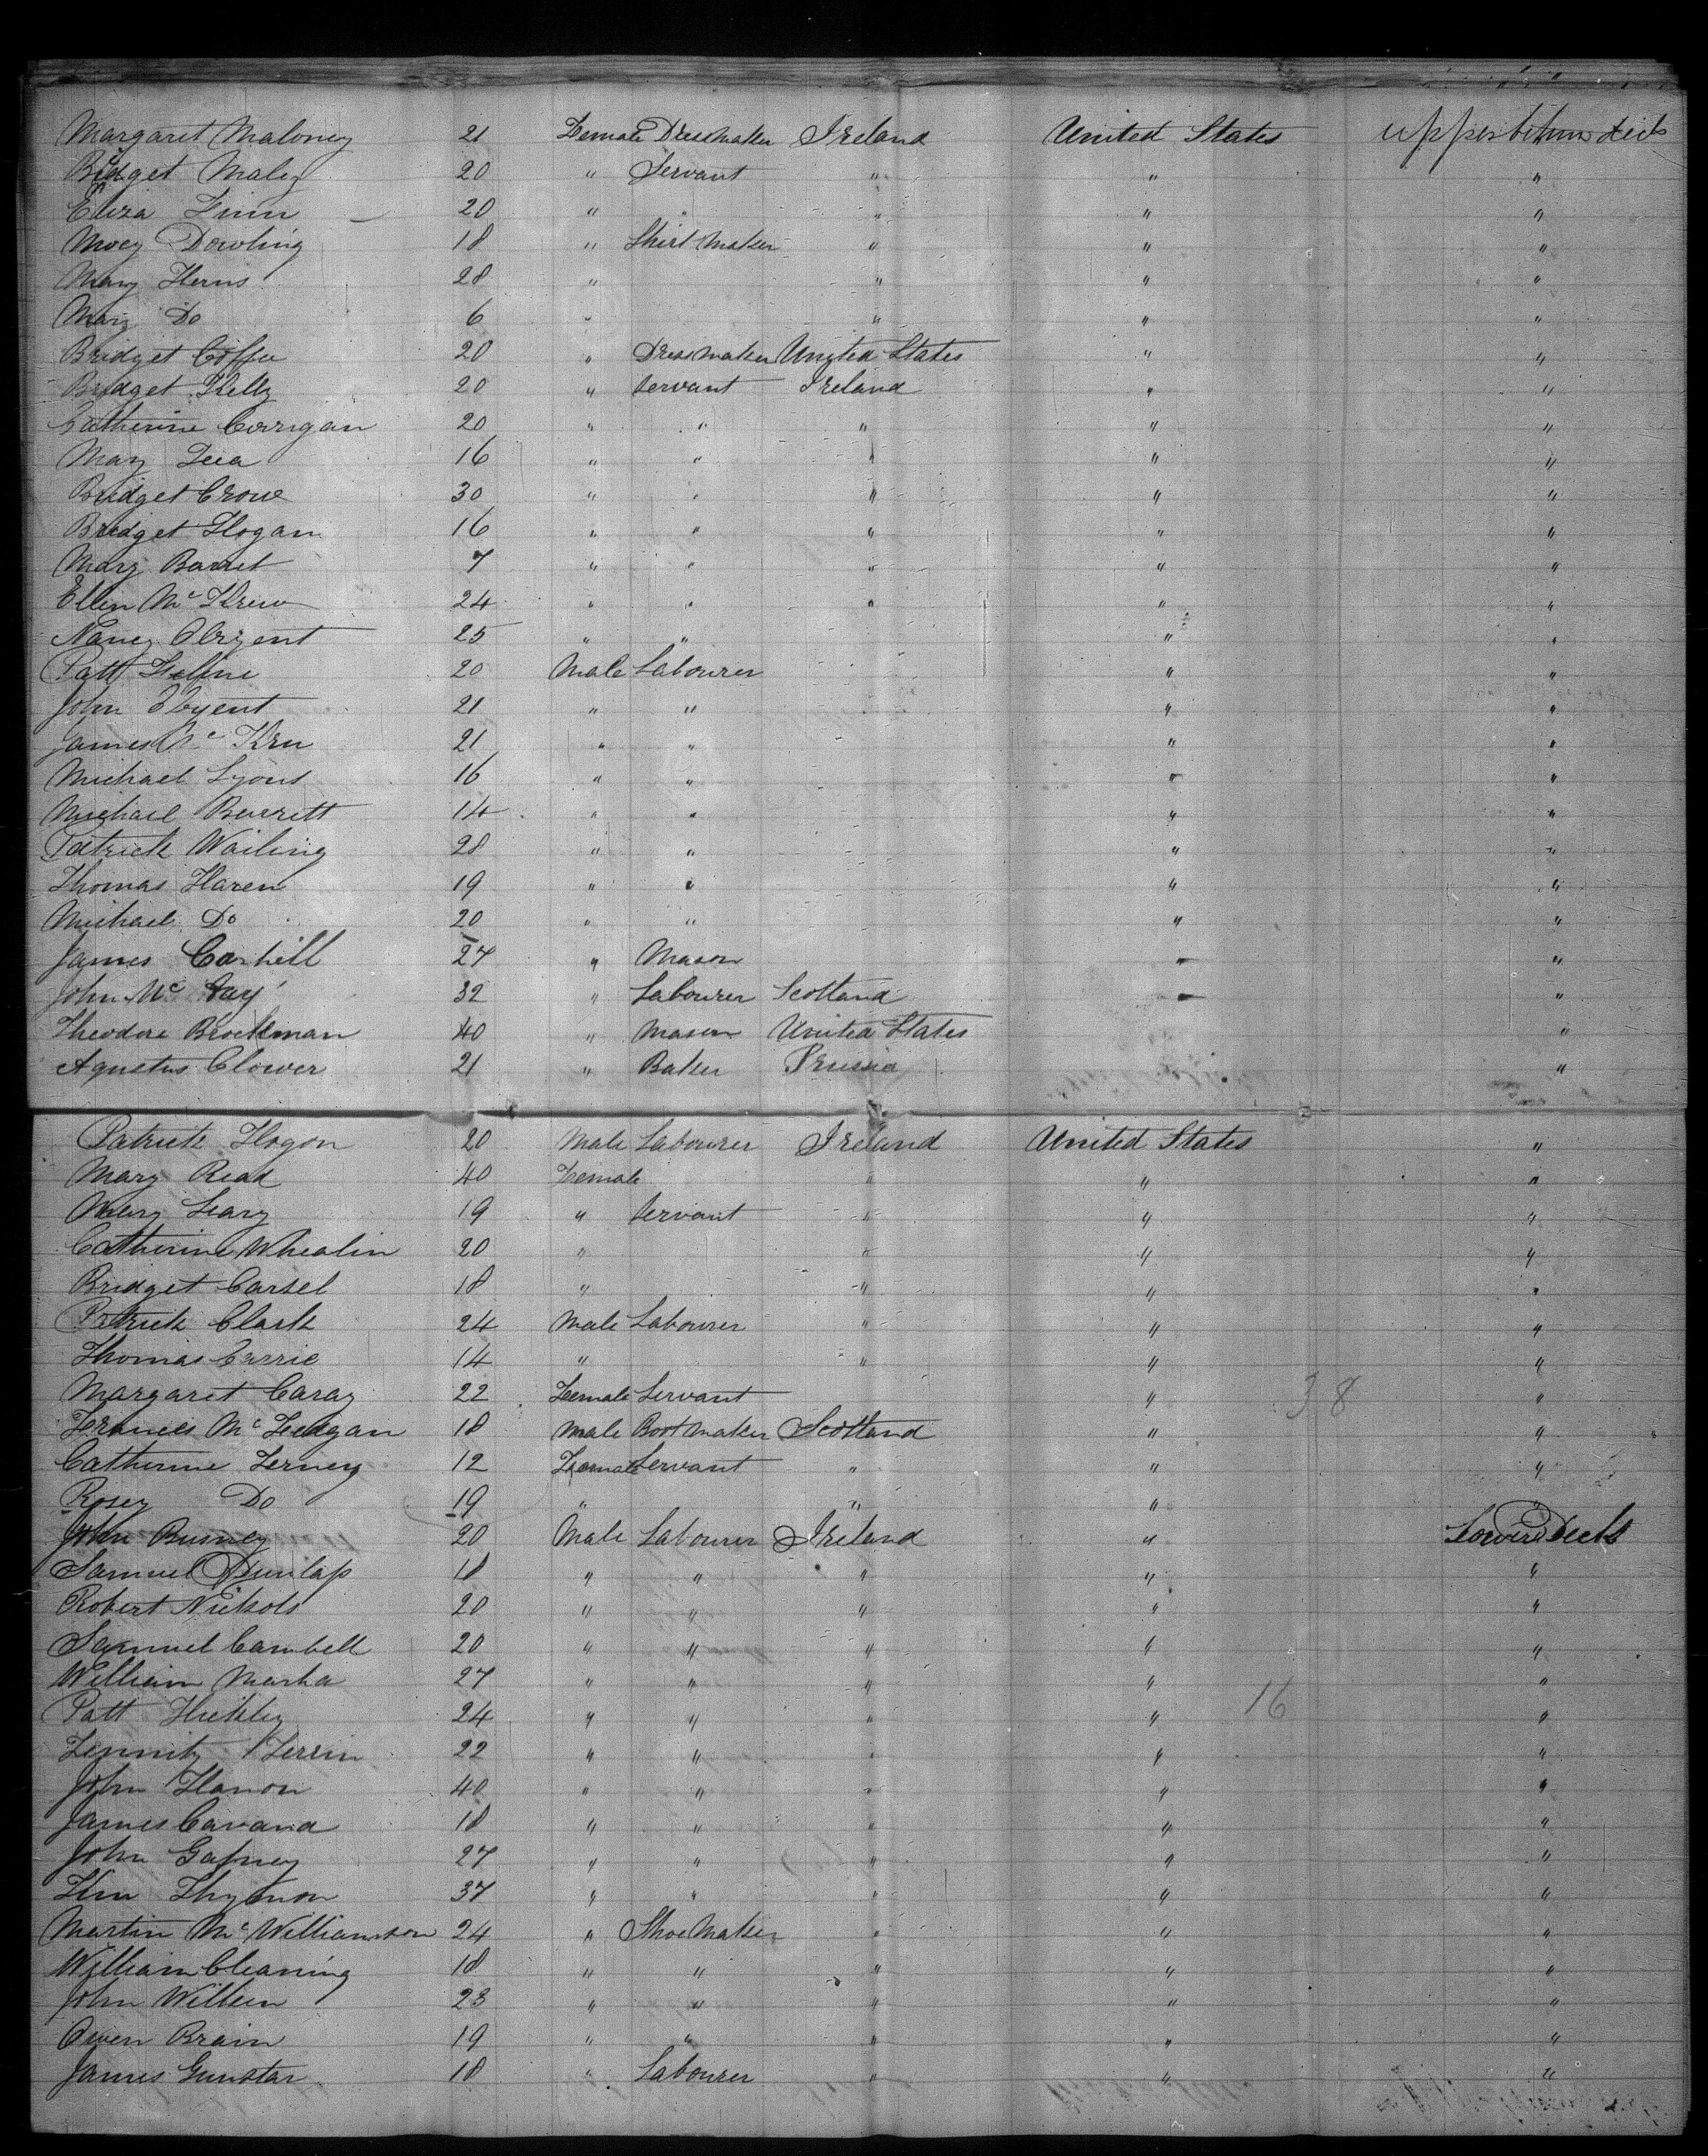 Margaret Maloney 21 Female Dressmaker Ireland United States upper between decks
Bridget Maley 20 " Servant " " "
Eliza Finn 20 " " " " "
Mary Dowling 18 " Shirt Maker " " "
Mary Herns 28 " " " "
Mary Do 6 " " " "
Bridget Coffee 20 " Dressmaker United States " "
Bridget Kelly 20 " Servant Ireland " "
Catherine Corrigan 20 " " " " "
Mary 16 " " " " "
Bridget Crowe 30 " " " " "
Bridget Hogan 16 " " " " "
Mary Barret 7 " " " " "
Ellen Mc Krew 24 " " " " "
Nancy 25 " " " "
Patt 20 Male Labourer " "
John 21 " " " "
James Mc Kru 21 " " " "
Michael Lyons 16 " " " "
Michael Barrett 14 " " " "
Patrick Wailing 28 " " " "
Thomas Haren 19 " " " "
Michael Do 20 " " " "
James Carhill 27 " Mason " "
John Mc Cay 32 " Labourer Scotland " "
Theodore Brockman 40 " Mason United States "
Agustus Clower 21 " Baker Prussia "
Patrick Hogon 20 Male Labourer Ireland United States "
Mary Read 40 Female " " "
Mary Leary 19 " Servant " " "
Catherine Whealin 20 " " " "
Bridget Carsel 18 " " " "
Patrick Clark 24 Male Labourer " " "
Thomas Carrie 14 " " " "
Margaret Caray 22 Female Servant " "
38
Frances Mc Feegan 18 Male Bootmaker Scotland " "
Catherine Ferney 12 Female Servant " " "
Rosey Do 19 " " " "
John Burney 20 Male Labourer Ireland " Lower Decks
Samuel Dunlap 18 " " " " "
Robert Nickols 20 " " " " "
Samuel Cambell 20 " " " " "
William Marka 27 " " " " "
Patt Hickley 24 " " " " 16 "
Ferrin 22 " " " " "
John Hanon 40 " " " " "
James Cavana 18 " " " " "
John Gafney 27 " " " " "
37 " " " " "
Martin Mc Williamson 24 " Shoe Maker " " "
William Cleaning 18 " " " " "
John Willien 23 " " " " "
Owen Brain 19 " " " " "
James Gunstar 18 " Labourer " " "